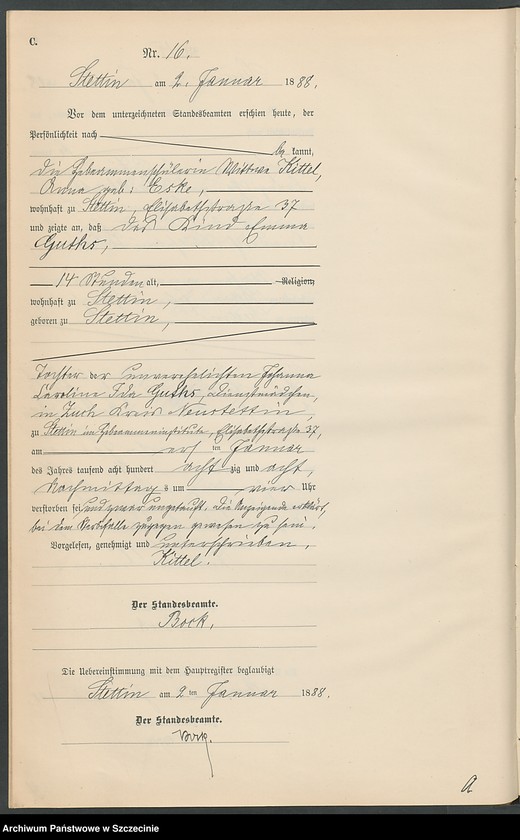 C.
Nr. 16.
Stettin am 2. Januar 1888.
Vor dem unterzeichneten Standesbeamten erschien heute, der
Persönlichkeit nach
be kannt,
die Hebammenschülerin Wittwe Kittel,
Anna geb: Eske,
wohnhaft zu Stettin, Elisabethstraße 37
und zeigte an, daß das Kind Emma
Guths,
14 Stunden alt, Religion,
wohnhaft zu Stettin,
geboren zu Stettin,
Tochter der unverehelichten Johanna
Caroline Ida Guths, Dienstmädchen,
in Zuch Kreis Neustettin,
zu Stettin im Hebammeninstitute, Elisabethstraße 37,
am ersten Januar
des Jahres tausend acht hundert acht zig und acht,
Nachmittags um vier Uhr
verstorben sei, und zwar ungetauft. Die Anzeigende erklärt,
bei dem Sterbfalle zugegen gewesen zu sein.
Vorgelesen, genehmigt und unterschrieben,
Kittel.
Der Standesbeamte.
Bock.
Die Uebereinstimmung mit dem Hauptregister beglaubigt
Stettin am 2ten Januar 1888.
Der Standesbeamte.
Bock.
a
Archiwum Państwowe w Szczecinie